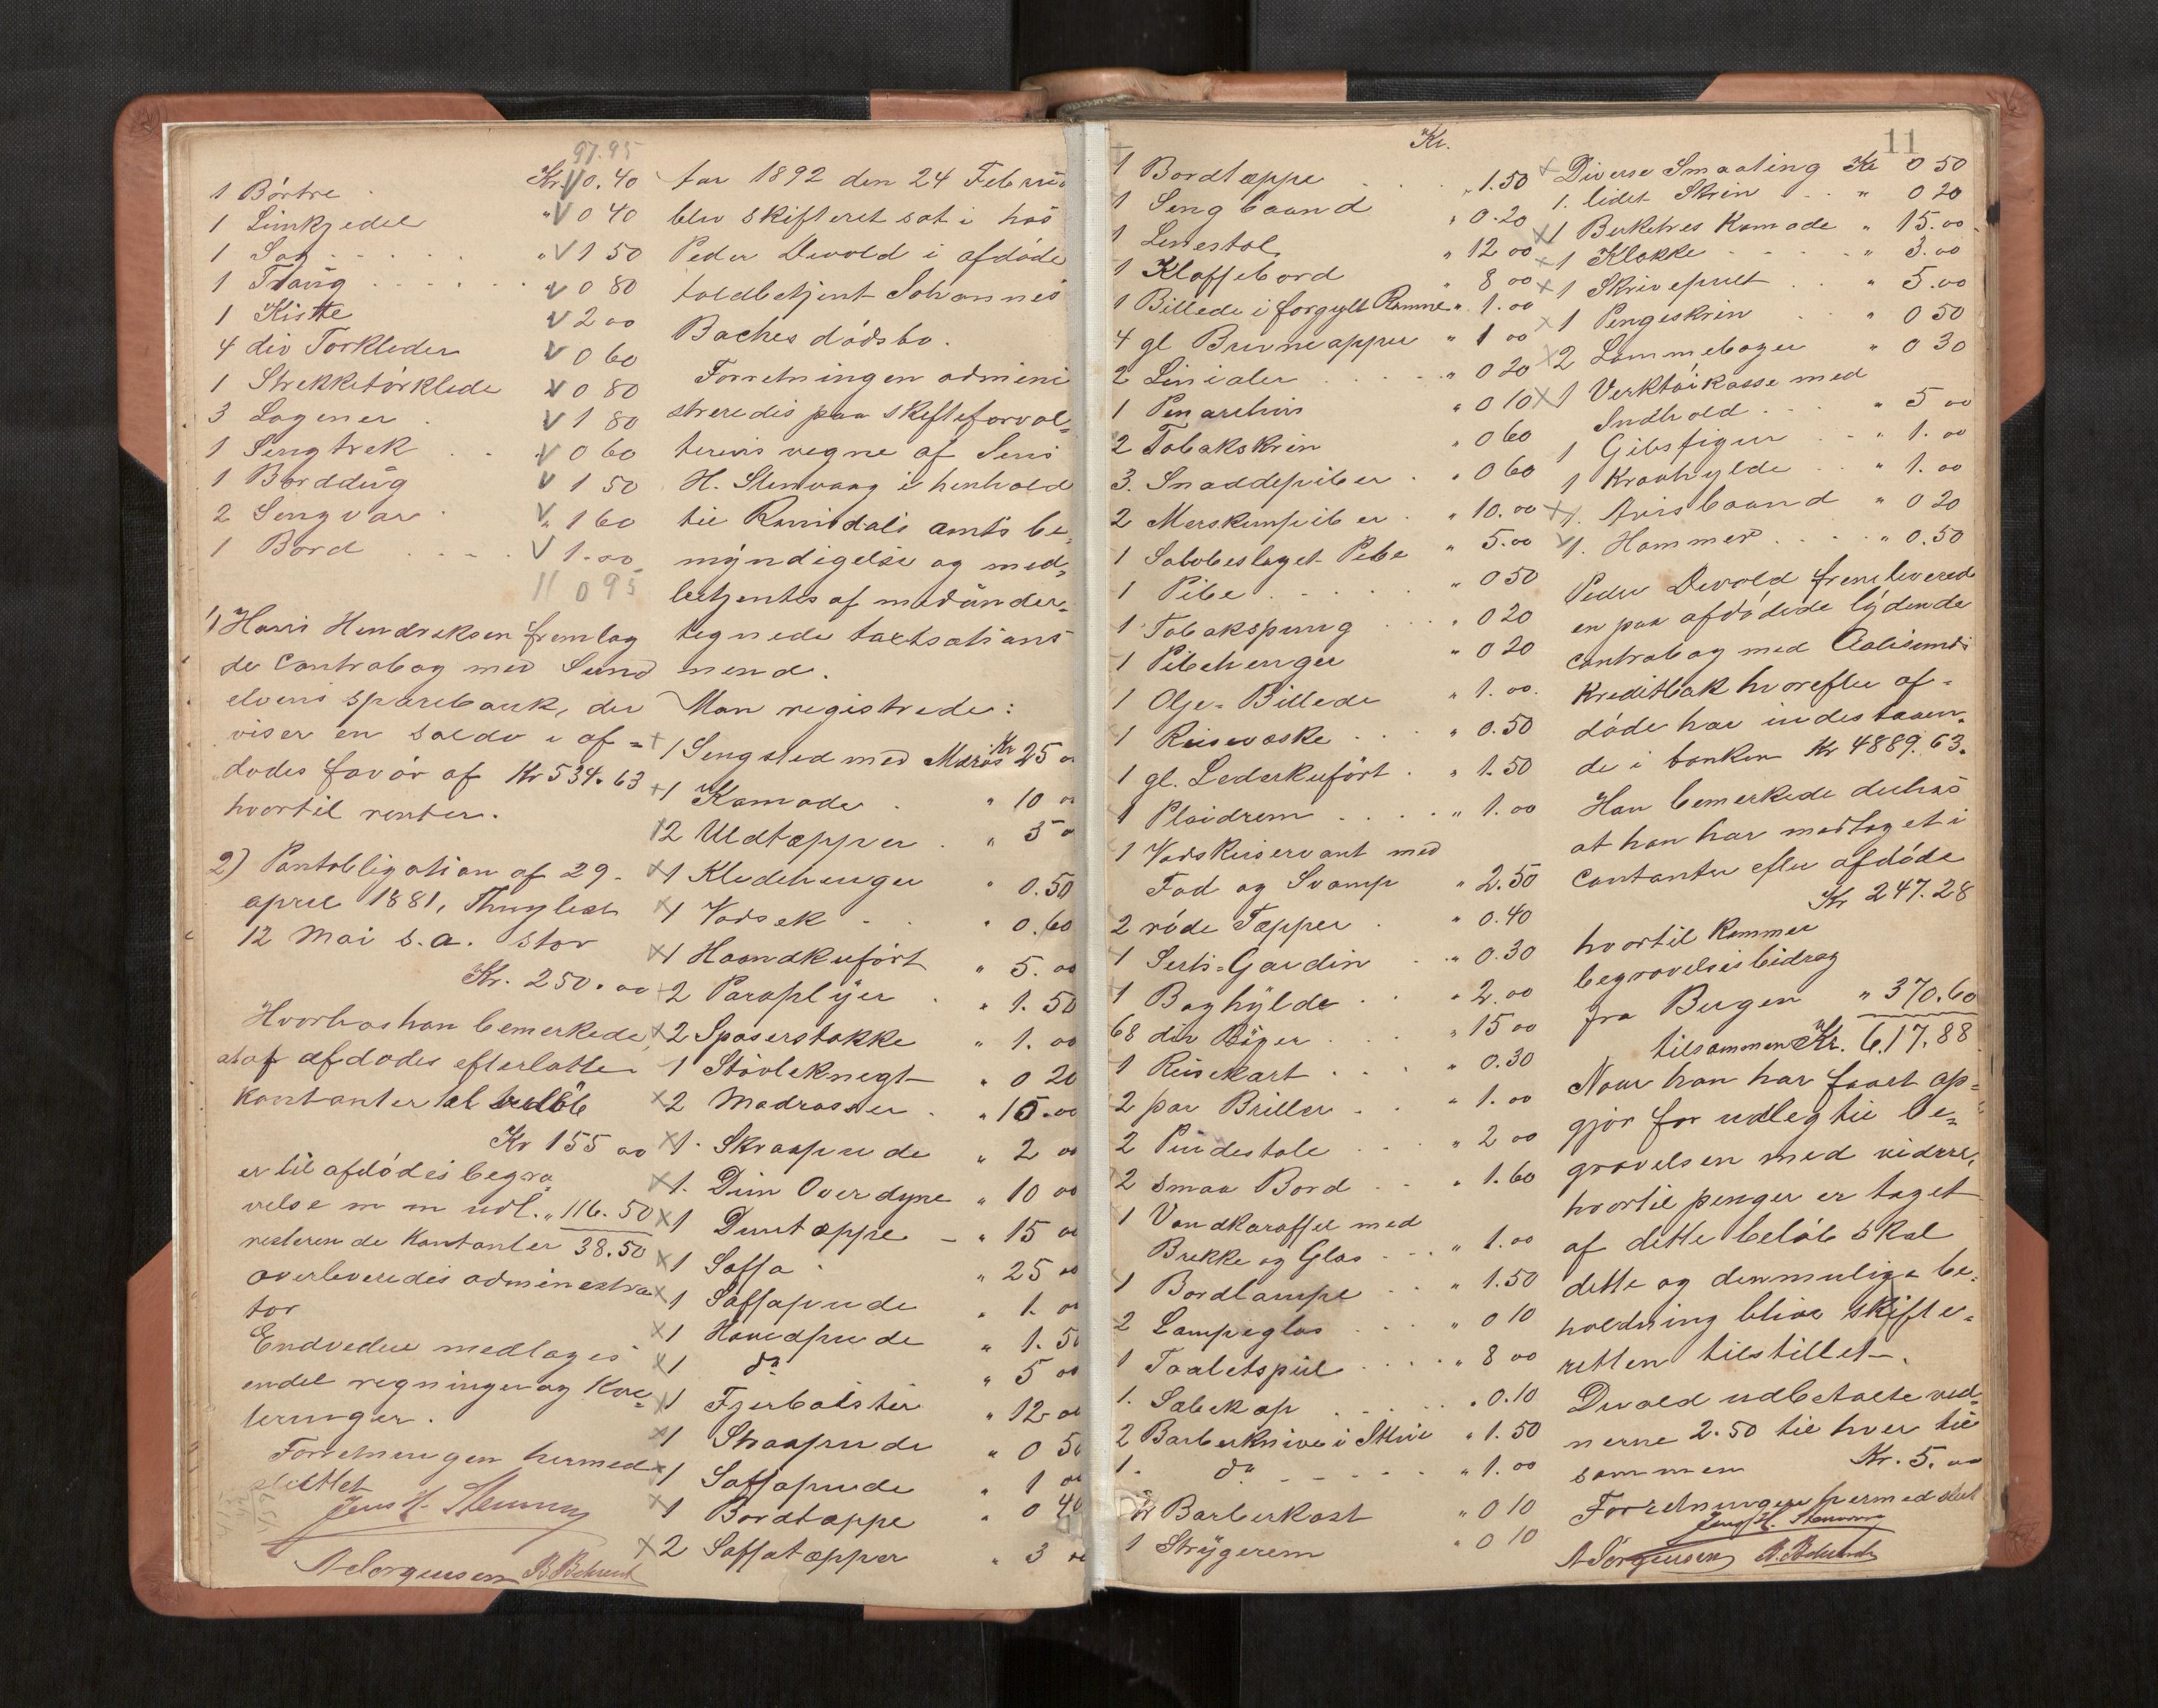 97.95
1 Börtre Kr. 0.40
1 Limkjedel " 0 40
1 Sag " 1 50
1 Traug " 0 80
1 Kiste 2 00
4 div Torkleder 0 60
1 Strekketörklede 0 80
3 Lagener 1 80
1 Sengtrek 0 60
1 Borddug 1 50
2 Sengvar " 1 60
1 Bord 1.00
110 95
1) Hans Hendreksen fremlag
de contrabog med Sund
elvens sparebank, der
viser en saldo i af-
dødes favør af Kr 534.63
hvortil renter.
2) Pantobligation af 29-
april 1881, Thinglest
12 Mai s.a. stor
Kr. 250.00
Hvorhos han bemerkede,
at af afdødes efterlatte
kontanter til beløb
Kr 155 00
er til afdødes begra
velse m m udl. " 116.50
resterende kontanter 38.50
overleveredes administra
tor
Endvedere medtoges
endel regninger og kvit
teringer.
Forretningen hermed
sluttet
Jens H. Stenvaag
A Jørgensen B. Behrent
Aar 1892 den 24 Februa
blev skifteret sat i hos
Peder Devold i afdøde
toldbetjent Johannes
Baches dødsbo.
Forretningen admini
streredes paa skifteforval-
terens vegne af Jens
H. Stenvaag i henhold
til Romsdals amts be
myndigelse og med-
betjentes af medunder-
tegnede taxtsations
mend.
Man registrede:
1 Sengsted med Madras Kr 25 00
1 Komode " 10 00
2 Uldtæpper " 5 00
1 Kledehenger " 0.50
1 Vadsek " 0.60
1 Haandkufört " 5.00
2 Paraplyer " 1.50
2 Spaserstokke " 1.00
1 Stövleknegt " 0 20
2 Madrasser " 15.00
1. Skraapude " 2 00
1. Dun Overdyne " 10 00
1 Duntæppe " 15 00
1 Soffa " 25 00
1 Soffapude " 1.00
1 Hovedpude " 1.50
1 do " 5 00
1 Fjerbolster " 12.00
1 Skraapude " 0 50
1 Soffapude " 1 00
1 Bordtæppe " 0 40
2 Soffatæpper " 3 00
11
Kr.
1 Bordtæppe " 1.50
1 Sengbaand " 0.20
1 Lenestol " 12 00
1 Klaffebord " 8 00
1 Billede i forgylt Ramme " 1.00
4 gl Brevmapper " 1 00
2 Linialer " 0 20
1 Penarchiv " 0 10
2 Tobakskrin " 0 60
3. Snaddepiber " 0 60
2 Merskumpiber " 10.00
1 Sølvbeslaget Pibe " 5.00
1 Pibe " 0 50
1 Tobakspung " 0 20
1 Pibehenger " 0 20
1 Olje-Billede " 1.00.
1 Reiseveske " 0.50
1 gl. Lederkufört " 1.50
1 Plaidrem " 1.00
1 Vadskeservant med
Fad og Svamp " 2.50
2 röde Tæpper " 0.40
1 Serts-Gardin " 0.30
1 Boghylde " 2.00
68 div Böger " 15 00
1 Reisekart " 0.30
2 par Briller " 1.00
2 Pindestole " 2 00
2 smaa Bord " 1.60
1 Vandkaraffel med
Brekke og Glas " 1.00
1 Bordlampe " 1.50
2 Lampeglas " 0 10
1 Toaletspeil " 8 00
1. Sæbekop " 0.10
2 Barberknive i Skrin " 1.50
1. do " 1.00
Barberkost " 0 10
1 Strygerem " 0 10
Diverse Smaating Kr 0 50
1. lidet Skrin " 0 20
1 Berketres Komode " 15.00
1 Klokke " 3.00
1 Skrivepult " 5.00
1 Pengeskrin " 0 50
2 Lommebøger " 0 30
1 Verktöikasse med
Indhold " 5 00
1 Gibsfigur " 1.00
1 Kraahylde " 1.00
1. Avisbaand " 0 20
1. Hammer " 0.50
Peder Devold fremleverede
en paa afdødede lydende
contrabog med Aalesunds
kreditbak hvorefter af-
døde har indestaaen-
de i banken Kr 4889.63.
Han bemerkede derhos
at han har modtaget i
contanter efter afdøde
Kr 247.28
hvortil kommer
begravelsesbidrag
fra Bergen " 370.60
tilsammen Kr. 617.88
Naar han har faaet op-
gjør for udleg til be-
gravelsen med videre,
hvortil penger er taget
af dette beløb skal
dette og den mulige be-
holdning blive skifte-
retten tilstillet.
Devold udbetalte ved
nerne 2.50 til hver til
sammen Kr. 5.00
Forretningen hermed slut
Jens H. Stenvaag
A Jørgensen B. Behrent